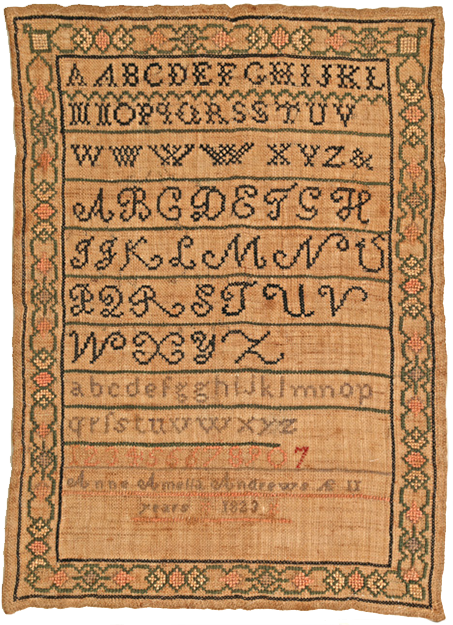 A A B C D E F G H I J K L
M N O P Q R S S T U V
W W W W X Y Z &
A B C D E F G H
I J K L M N O
P Q R S T U V
W X Y Z
a b c d e f g g h i j k l m n o p
q r s s t u v w x y z
7
Anna Amelia Andrews Æ 11
years 1823